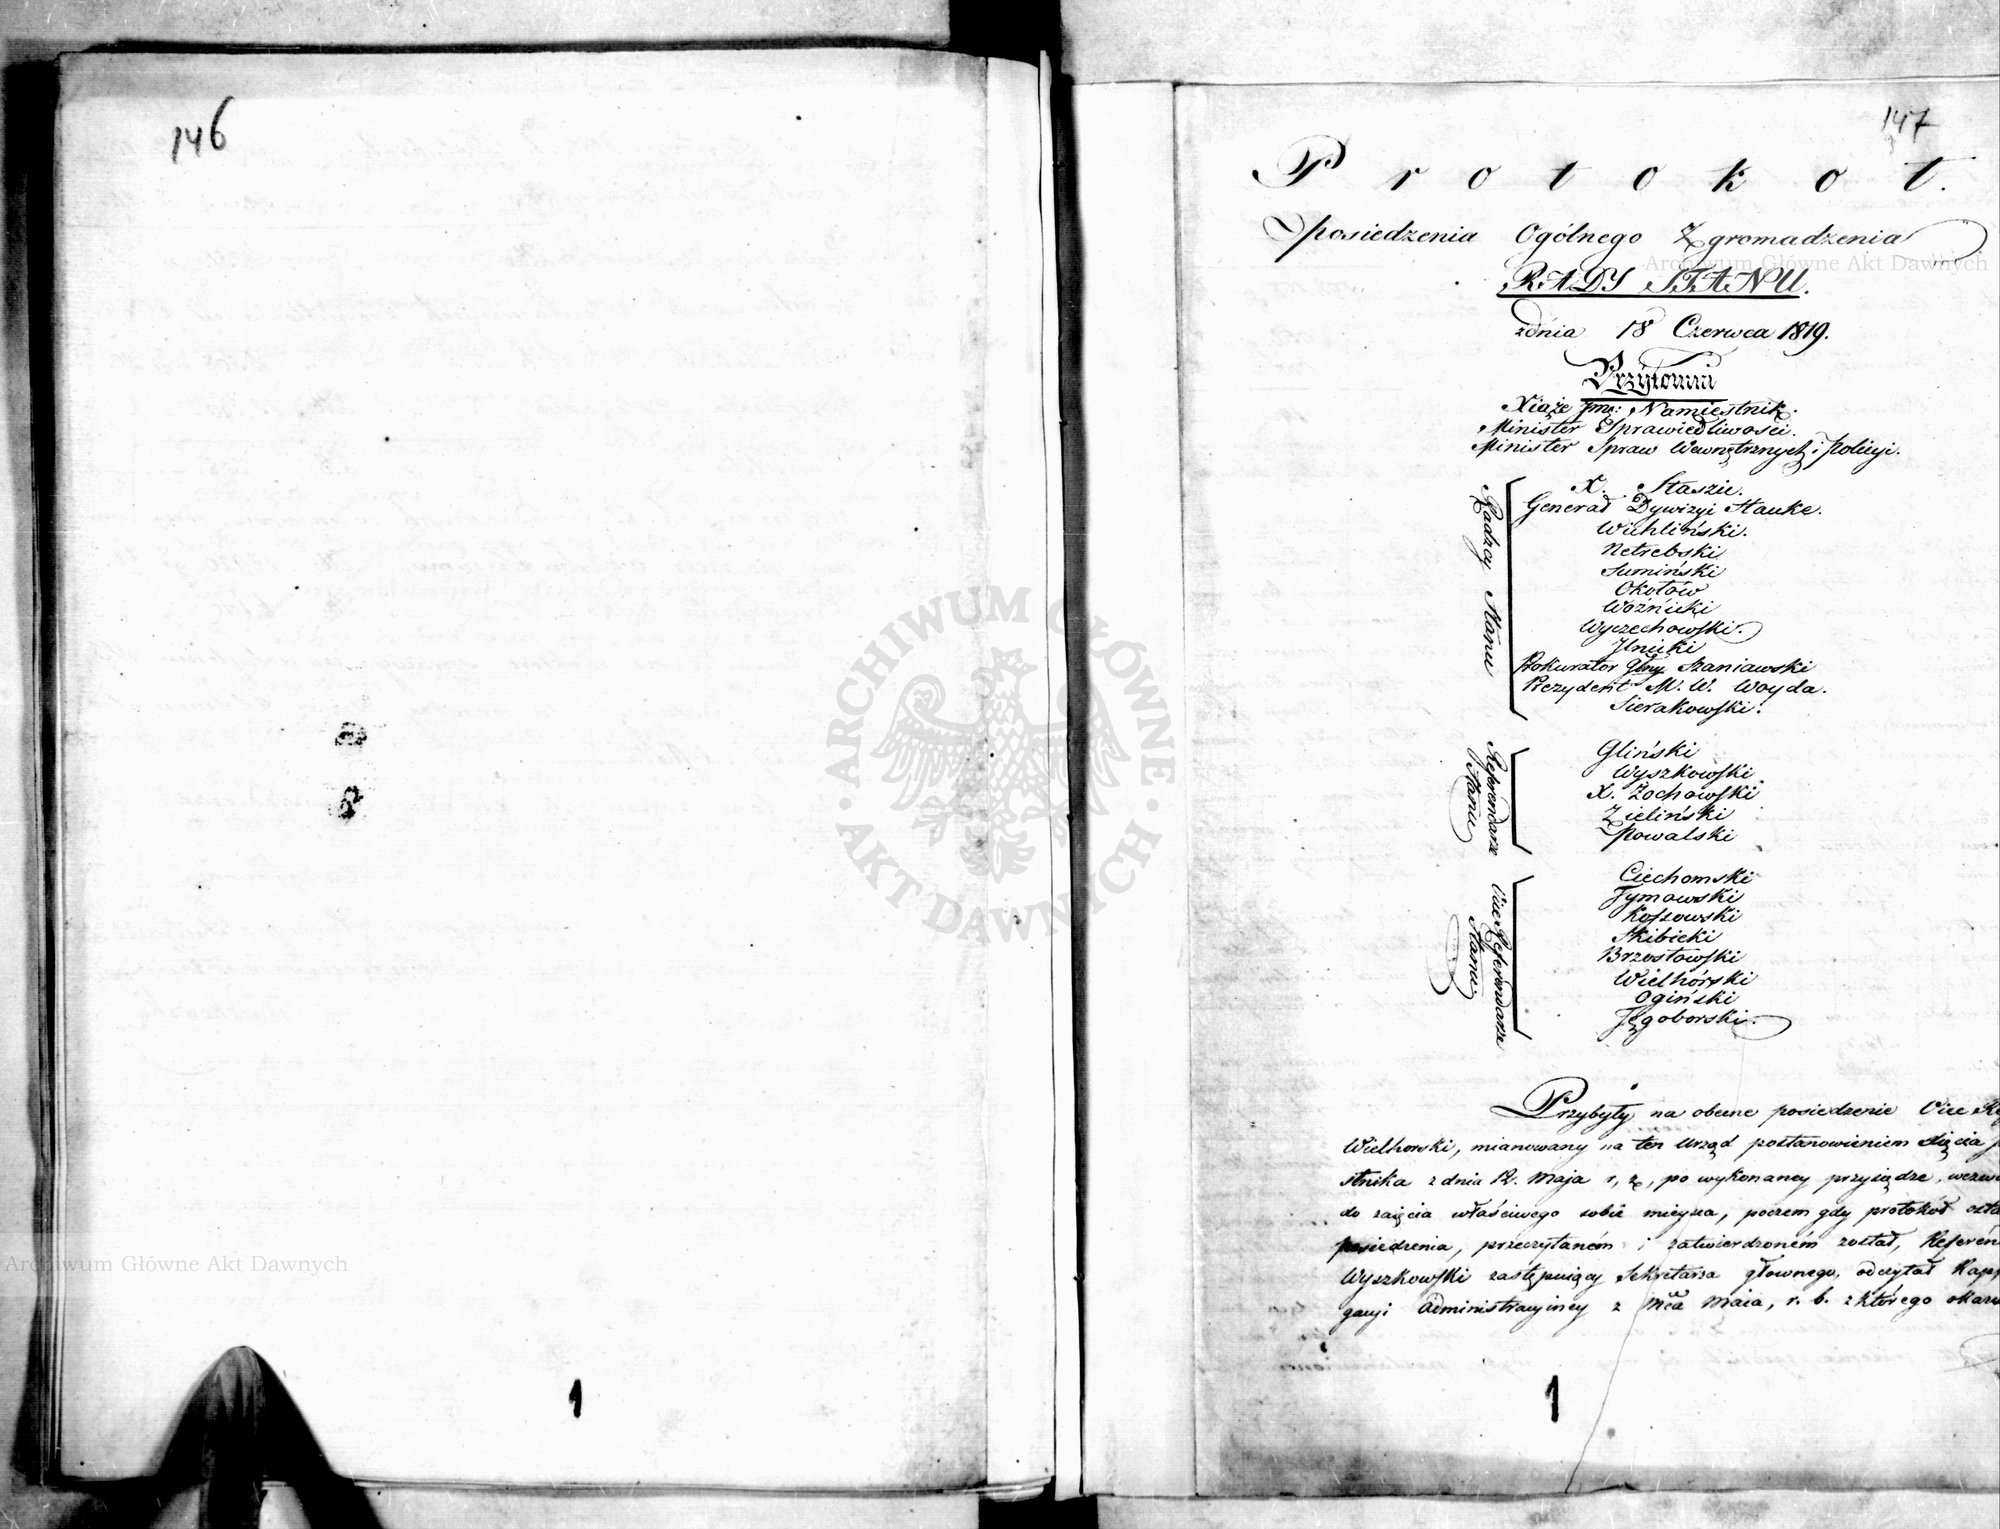 146
147
Protokół.
Posiedzenia Ogólnego Zgromadzenia
RADY STANU.
z dnia 18 Czerwca 1819.
Przytomni
Xiąże Jmć: Namiestnik.
Minister Sprawiedliwości.
Minister Spraw Wewnętrznych i Policyi.
Radzcy Stanu
X. Staszic.
Generał Dywizyi Hauke.
Wichliński.
Netrebski
Sumiński
Okołów
Woźnicki
Wyczechowski.
Ilnicki
Prokurator Glny Szaniawski
Prezydent M. W. Woyda.
Sierakowski.
Referendarze Stanu
Gliński
Wyszkowski
X. Żochowski
Zieliński
Powalski
Vice Referendarze Stanu
Ciechomski
Tymowski
Kossowski
Skibicki
Brzostowski
Wielhórski
Ogiński
Tęgoborski.
Przybyły na obecne posiedzenie Vice
Wielhorski, mianowany na ten Urząd postanowieniem Xięcia
stnika z dnia 12. Maja r, z, po wykonaney przysiądze,
do zaięcia właściwego sobie mieysca, poczem gdy protokół
posiedzenia, przeczytaném i zatwierdzoném został,
Wyszkowski zastępuiący Sekretarza głownego, odczytał
gacyi Administracyiney z mca Maia, r. b. z którego
1
1
ARCHIWUM GŁÓWNE AKT DAWNYCH
Archiwum Główne Akt Dawnych
Archiwum Główne Akt Dawnych